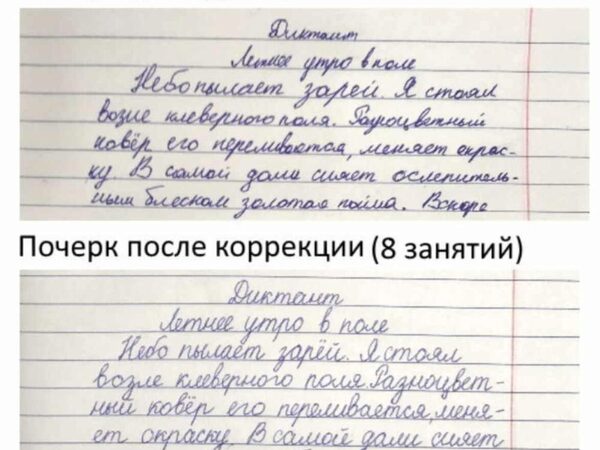 Диктант
Летнее утро в поле
Небо пылает зарёй. Я стоял
возле клеверного поля. Разноцветный
ковёр его переливается, меняет окрас-
ку. В самой дали сияет ослепитель-
ным блеском золотая пойма. Вскоре
Почерк после коррекции (8 занятий)
Диктант
Летнее утро в поле
Небо пылает зарёй. Я стоял
возле клеверного поля. Разноцвет-
ный ковёр его переливается, меня-
ет окраску. В самой дали сияет